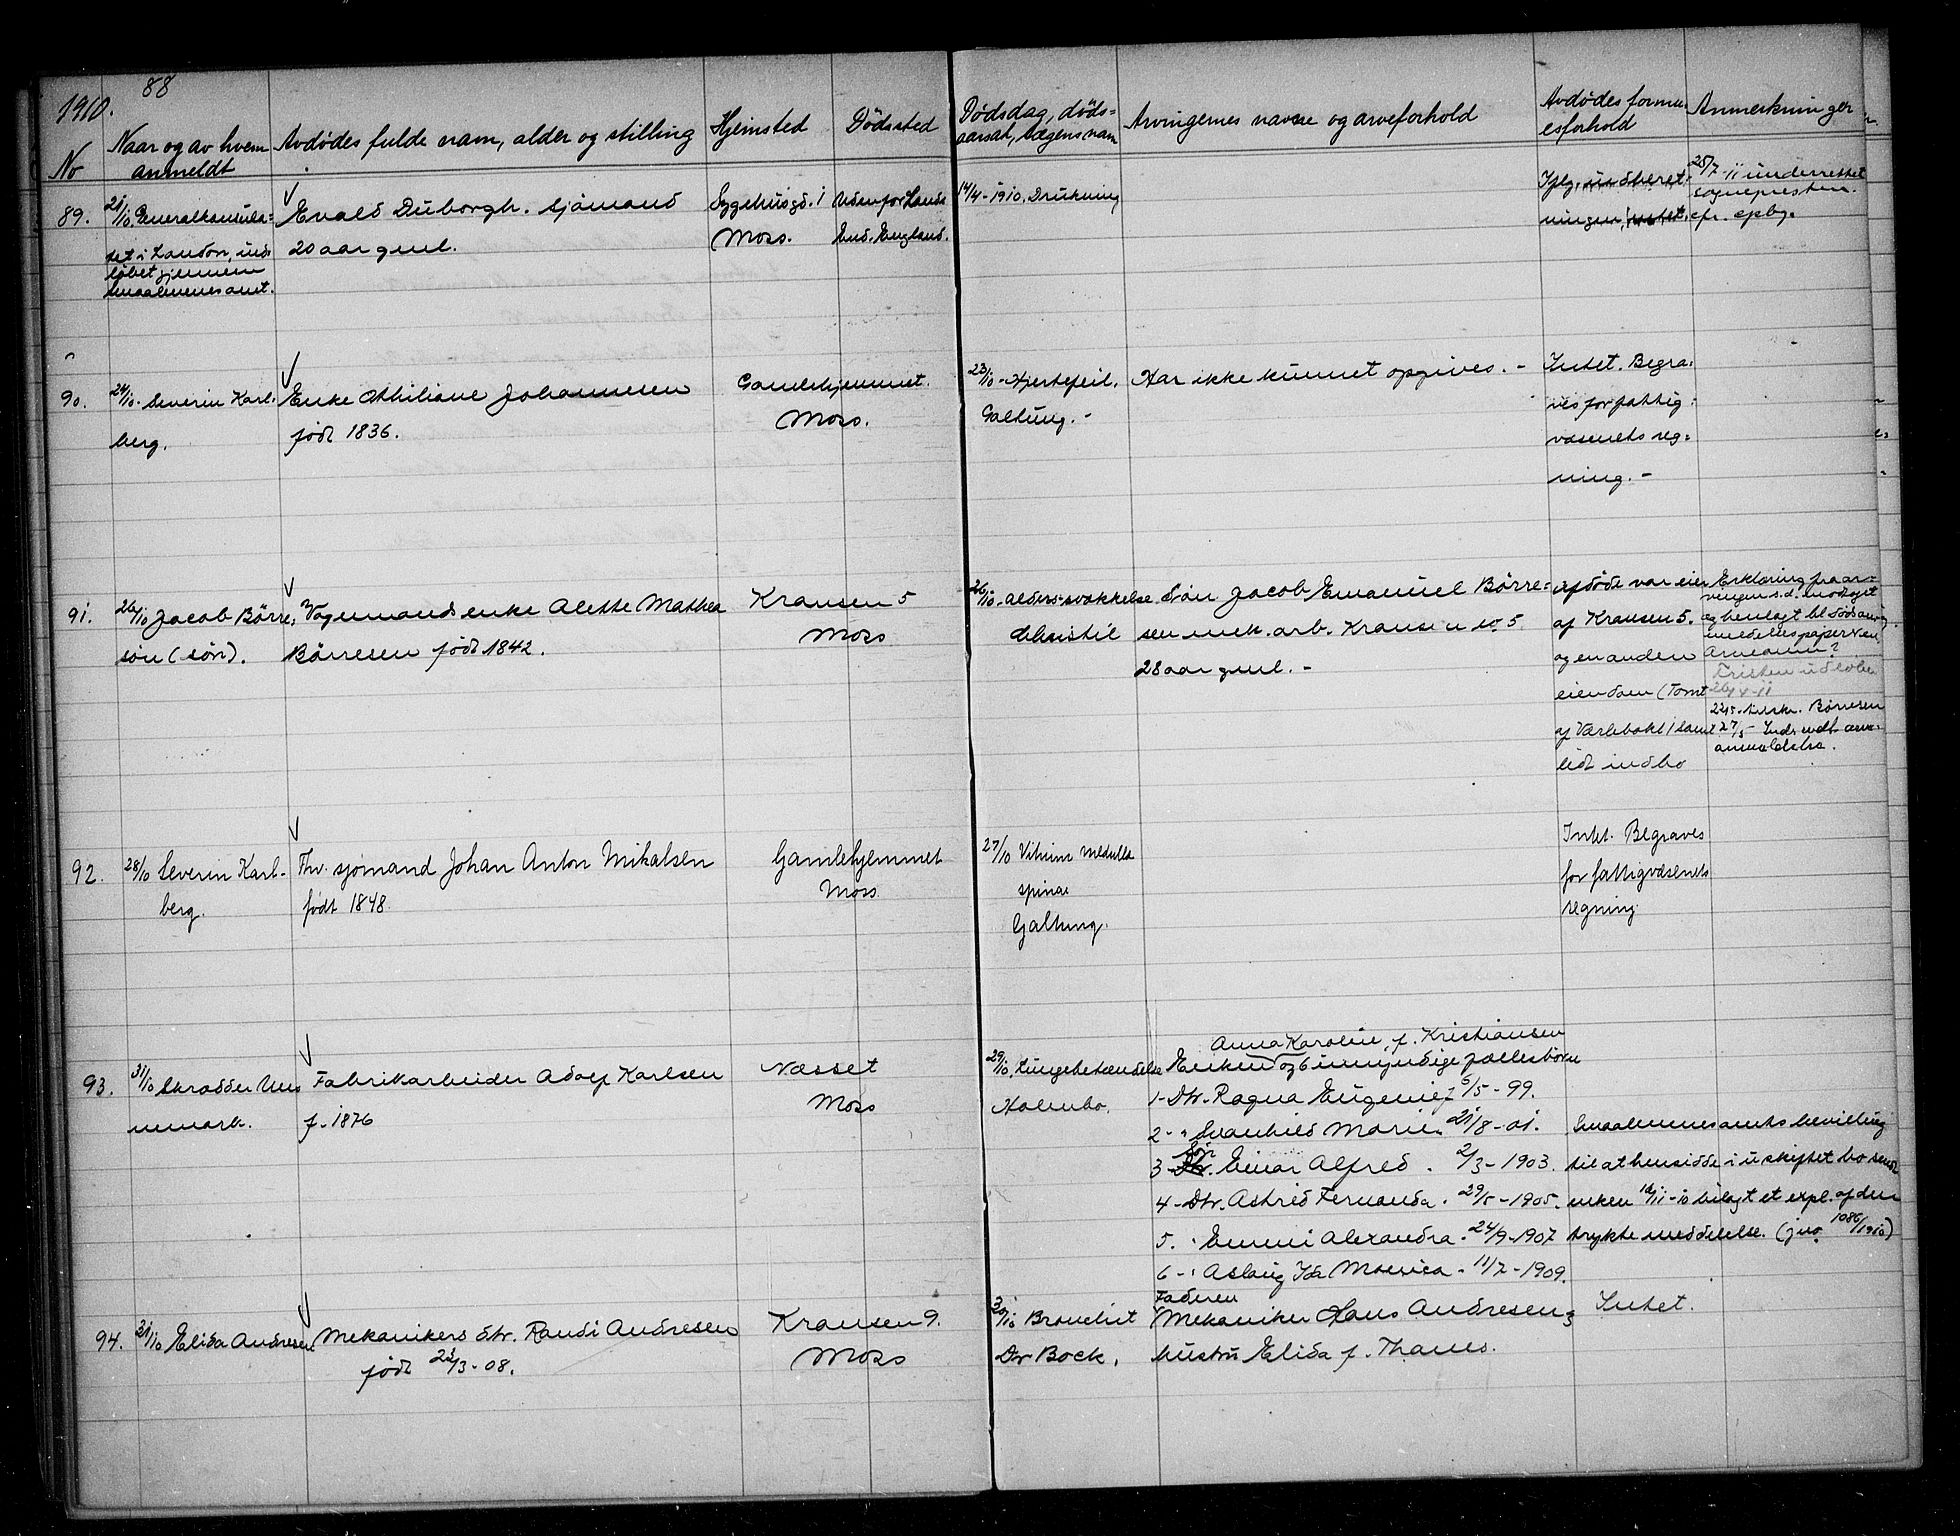 1910.
88
No
Naar og av hvem anmeldt
Avdødes fulde navn, alder og stilling
Hjemsted
Dødssted
Dødsdag, døds=
aarsak, lægens navn
Arvingernes navne og arveforhold
Avdødes formu=
esforhold
Anmerkninger
89.
21/10. Generalkonsula=
tet i London, ind=
løbet gjennem
Smaalenenes amt.
Evald Duborgh. Sjømand
20 aar gml.
Sygehusgd. 1
Moss.
Udenfor Lands
End. England.
14/4-1910. Drukning
Iflg. indberet=
ningen, intet.
25/7-11 underrettet
sognepresten.
cfr. cpbg.
90.
24/10. Severin Karl=
berg.
Enke Athiliane Johannesen
født 1836.
Gamlehjemmet.
Moss.
23/10 - Hjertefeil.
Galtung. -
Har ikke kunnet opgives. -
Intet. Begra=
ves for fattig=
væsenets reg=
ning. -
91.
26/10 Jacob Børre=
sen (søn).
Vognmands enke Alette Mathea
Børresen født 1842.
Kransen 5
Moss
26/10. Aldersvækkelse
Christie
Søn Jacob Emanuel Børre=
sen mek. arb. Kransen no. 5
28 aar gml. -
Afdøde var eier
af Kransen 5.
og en anden
eiendom (Tomt
af Værlebakt) samt
lidt indbo
Erklæring fra ar=
vingen s.d. modtaget
og henlagt bl. dødsan=
meldelsespapirer
Fristen udløber
26/4-11
27/5 - Inds. endt. arve=
anmeldelse.
92.
28/10 Severin Karl-
berg.
Fhv. sjømand Johan Anton Mikalsen
født 1848.
Gamlehjemmet
Moss
27/10 Vitium medulla
spinae
Galtung.
Intet. Begraves
for fattigvæsenets
regning
93.
31/10 Skrædder
Fabrikarbeider Adolf Karlsen
f. 1876
Næsset
Moss
29/10. Lungebetændelse
Holmbo.
Anna Karoline, f. Kristiansen
Enken og 6 umyndige fællesbørn
1- Dtr. Ragna Eugenie f. 5/5-99.
2- " Svanhild Marie. 21/8-01.
3- Søn Einar Alfred. 2/3-1903.
4- Dtr. Astrid Fernanda. 29/5-1905.
5. " Emmi Alexandra. 24/9-1907
6- " Aslaug Ida Maerica - 11/7-1909.
Smaalenenes amts bevilling
til at hensidde i uskiftet bo sendt
enken 16/11-10 bilagt et expl. af den
trykte meddelelse. (jno. 1086/1910)
94.
31/10 Elida Andresen
Mekanikers dtr. Randi Andresen
født 23/3-08.
Kransen 9.
Moss
30/10 Bronchit
Dr Bock.
Faderen
Mekaniker Hans Andresen og
hustru Elida f. Thanes.
Intet.